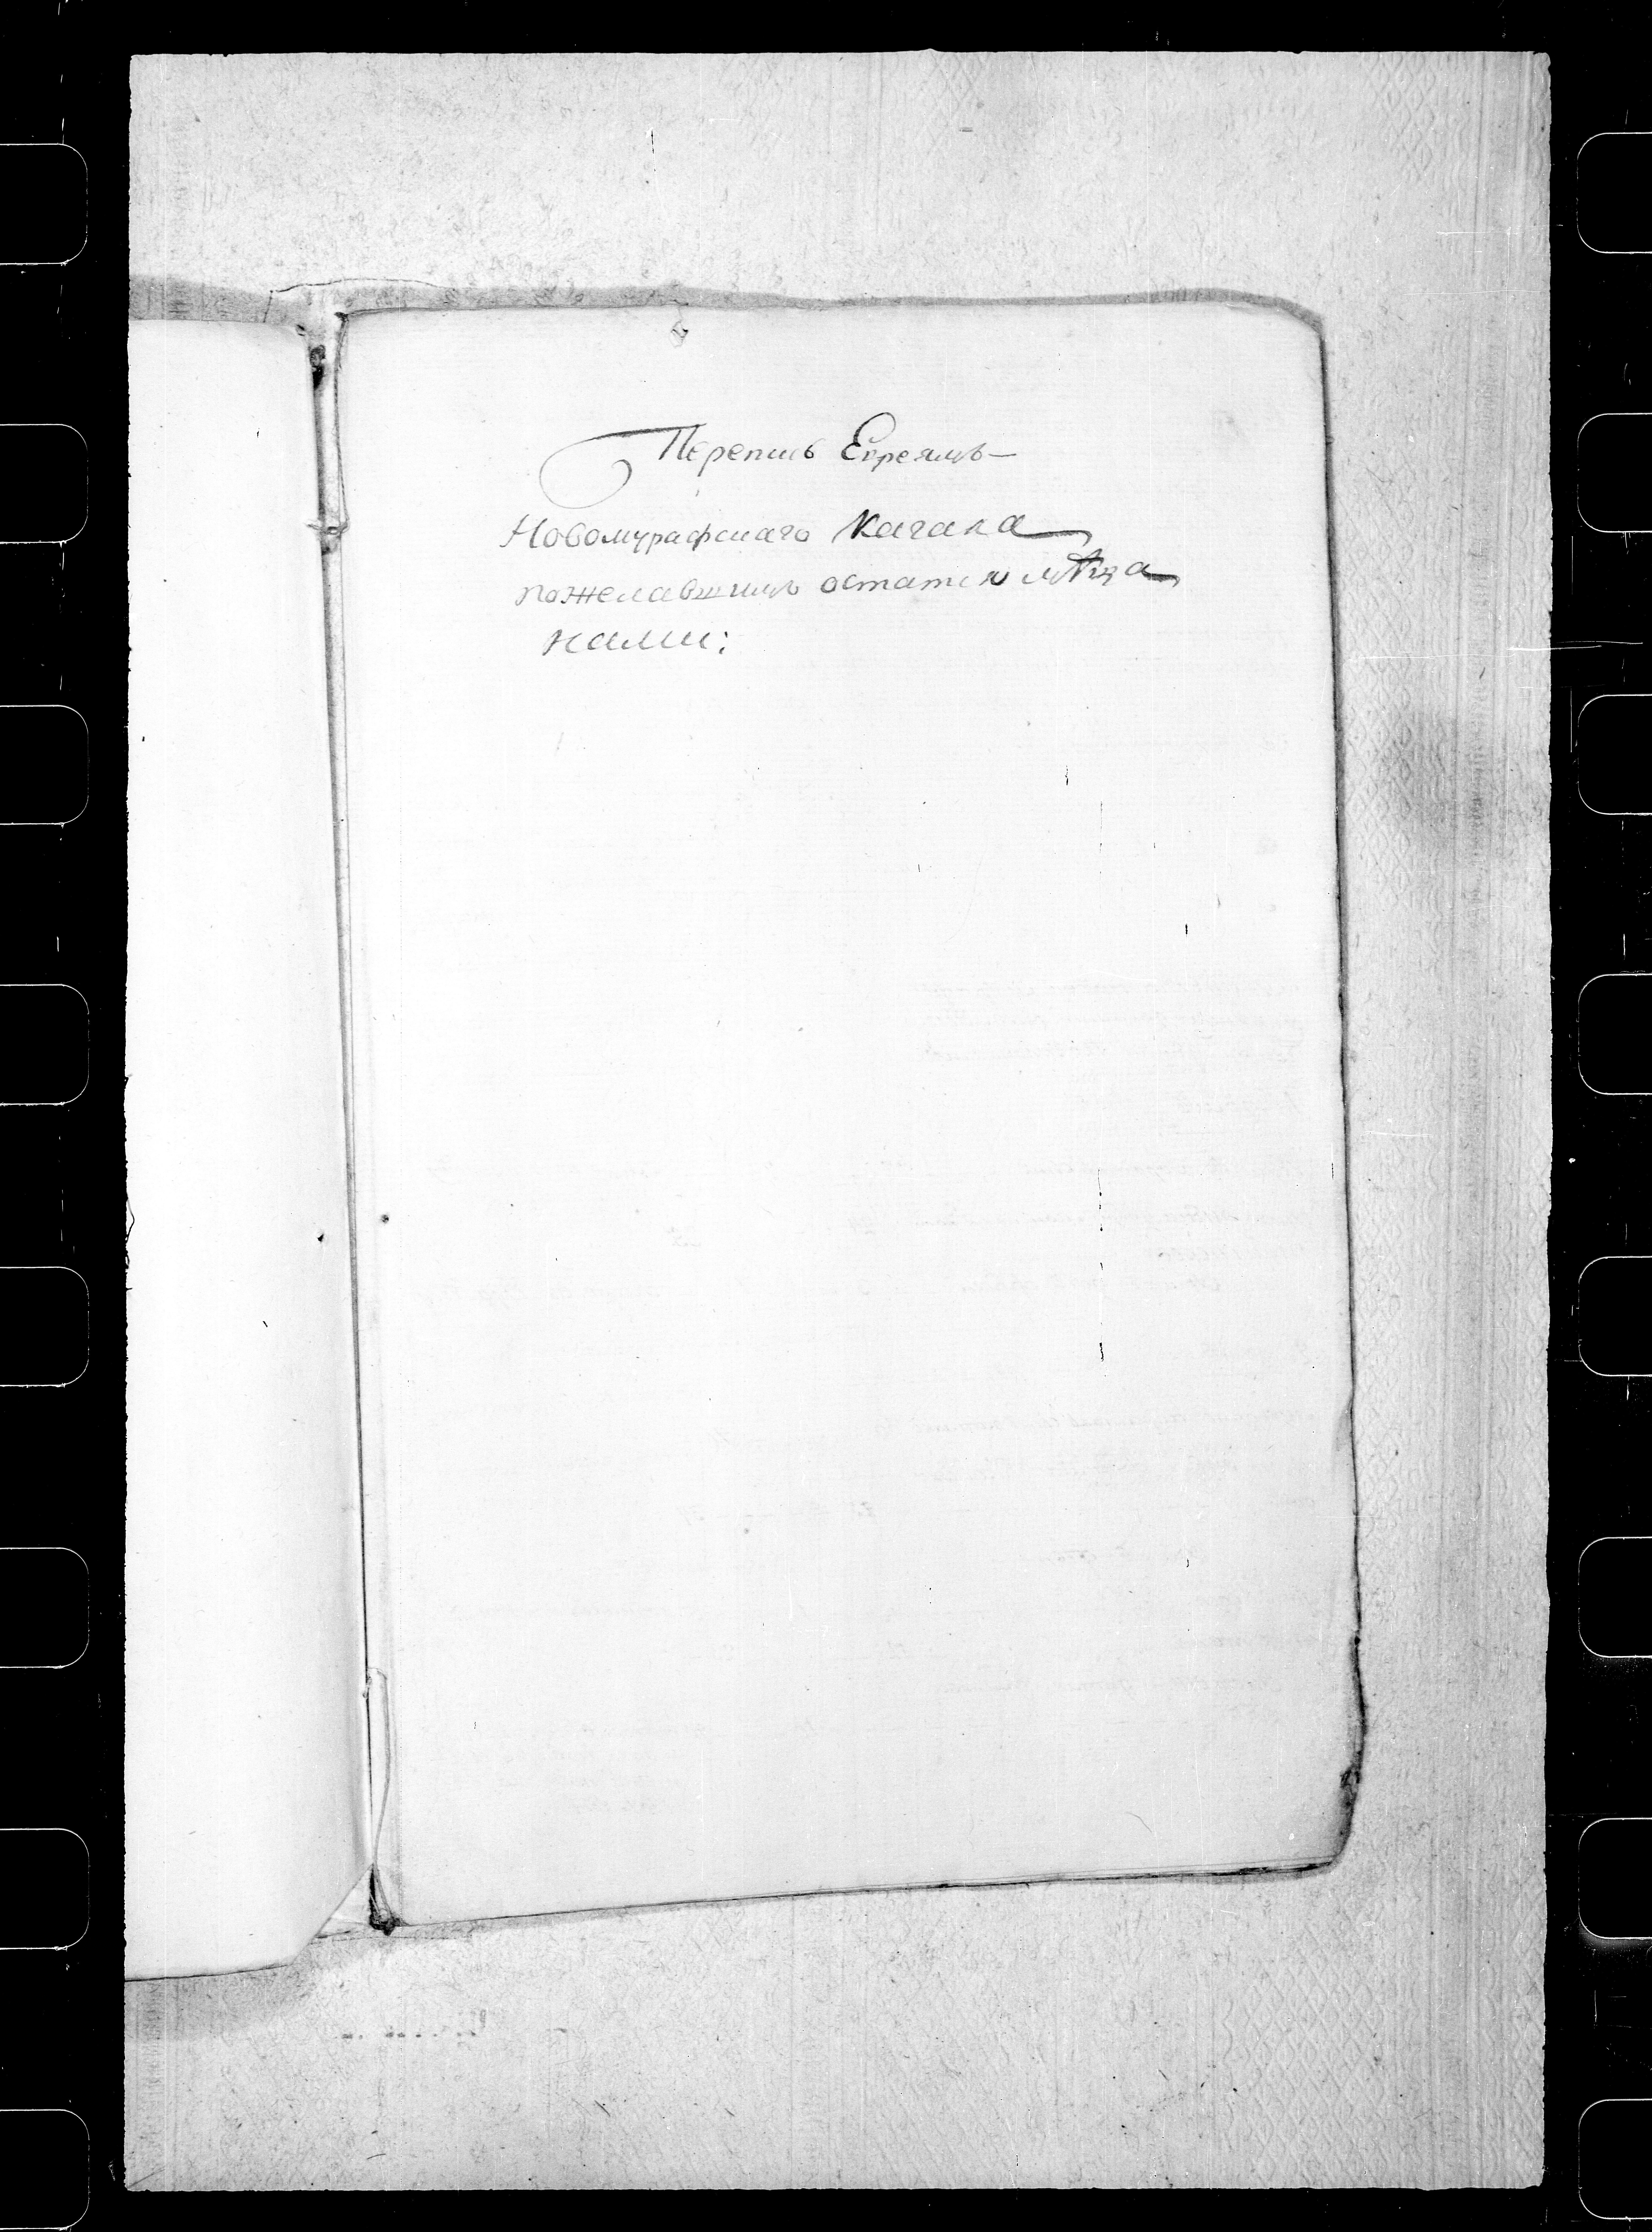 Перепись Евреямъ
Новомурафскаго Кагала
пожелавшимъ остатся мѣща
нами: